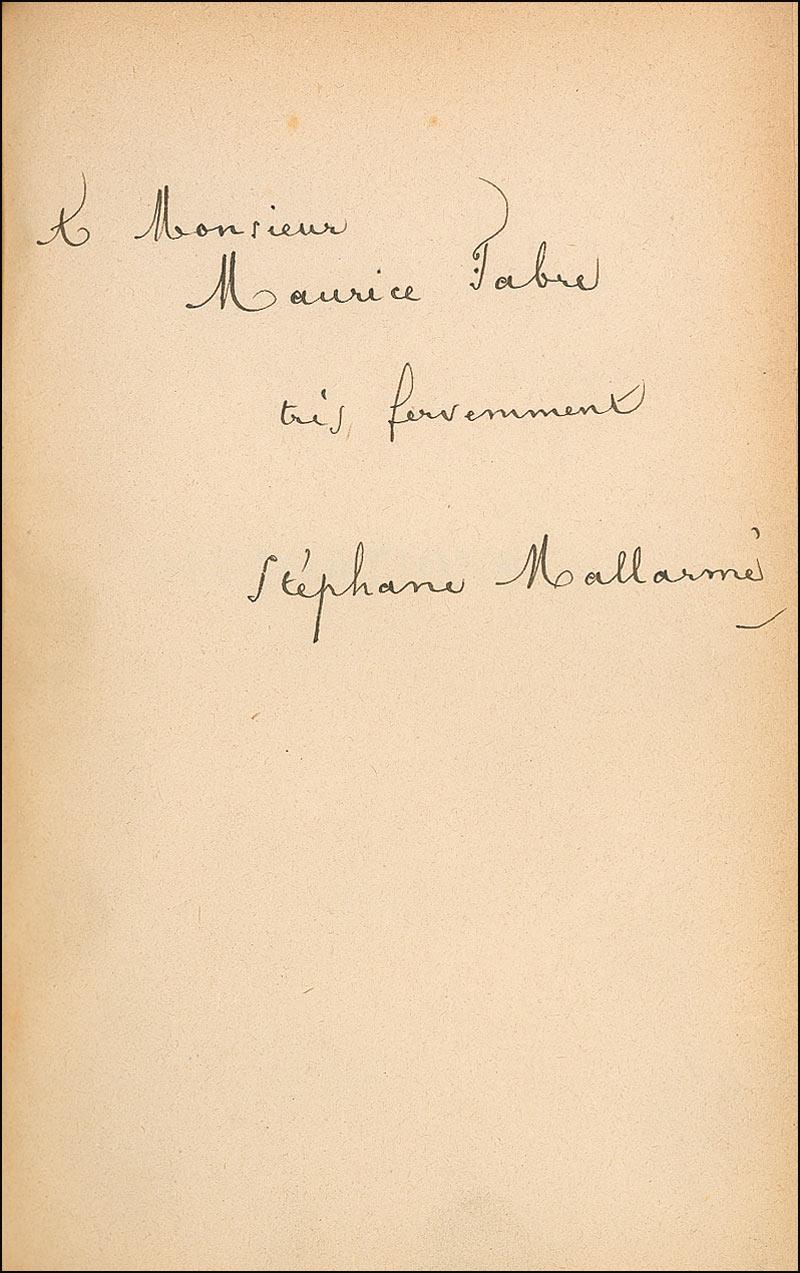 A Monsieur
Maurice Fabre
très fervemment
Stéphane Mallarmé